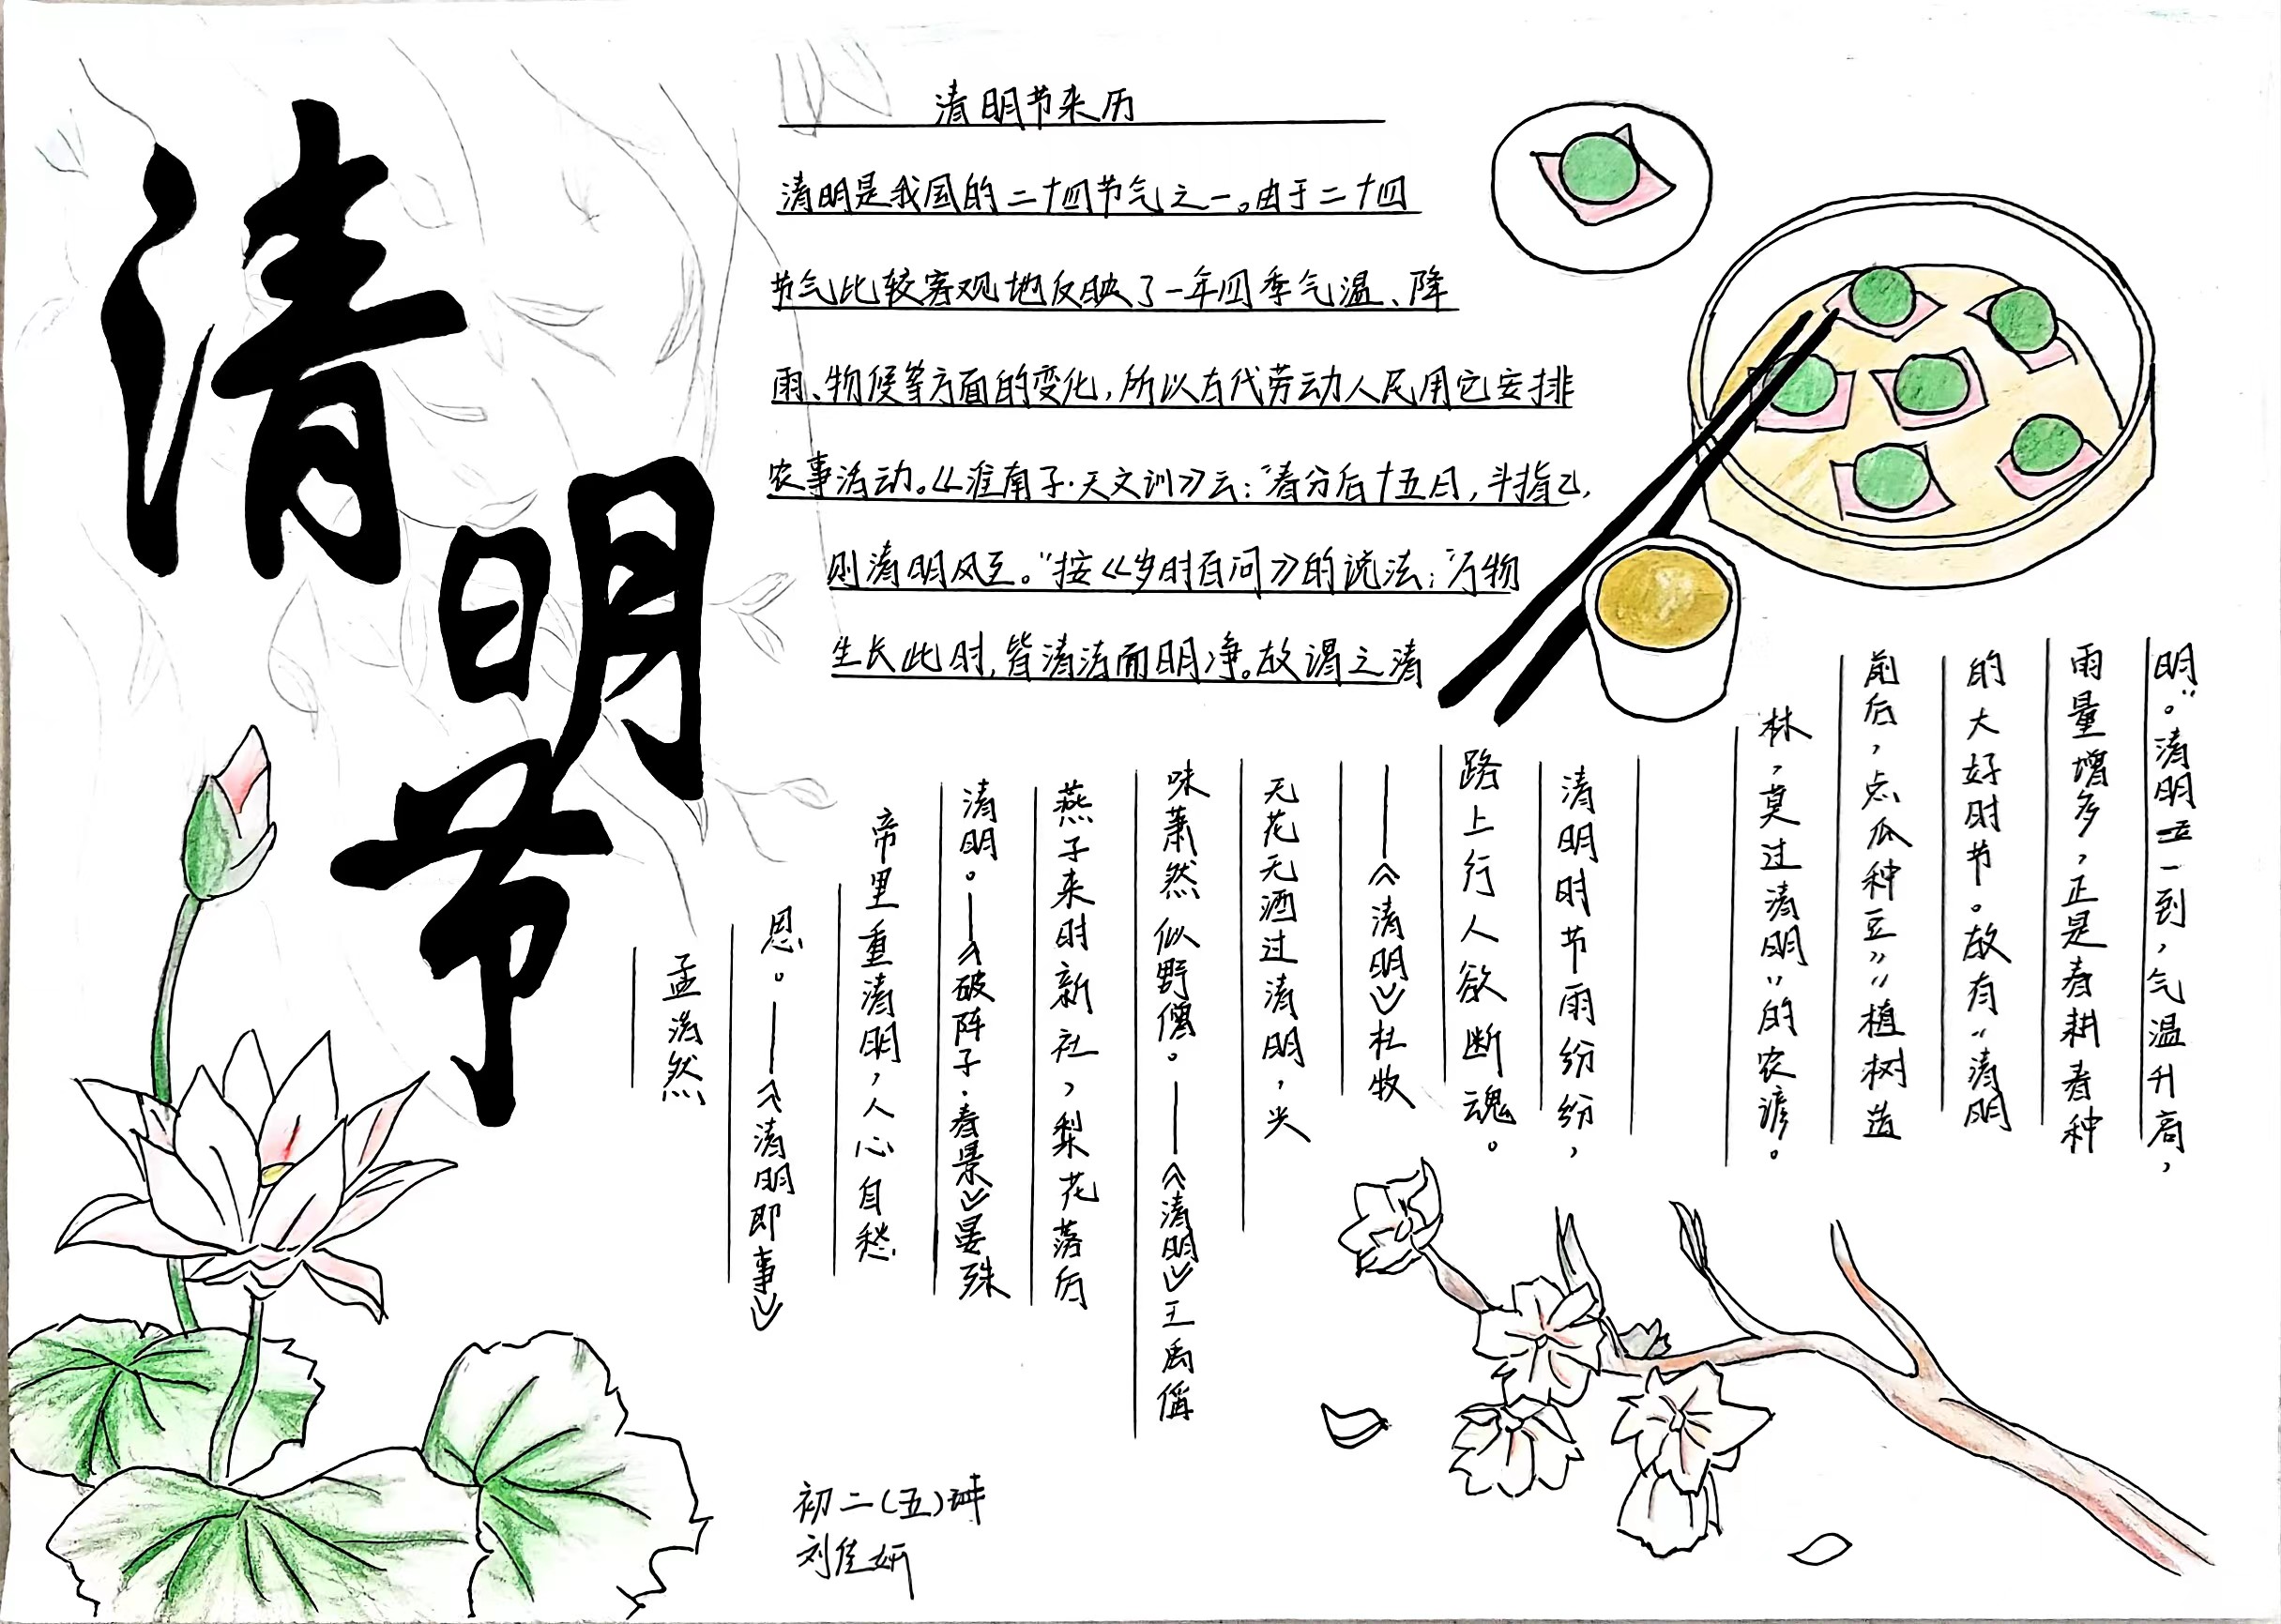 清明节
清明节来历
清明是我国的二十四节气之一。由于二十四
节气比较客观地反映了一年四季气温、降
雨、物候等方面的变化，所以古代劳动人民用它安排
农事活动。《淮南子·天文训》云：“春分后十五日，斗指乙，
则清明风至。”按《岁时百问》的说法：“万物
生长此时，皆清洁而明净。故谓之清
明”。清明一到，气温升高，
雨量增多，正是春耕春种
的大好时节。故有“清明
前后，点瓜种豆”“植树造
林，莫过清明”的农谚。
清明时节雨纷纷，
路上行人欲断魂。
——《清明》杜牧
无花无酒过清明，兴
味萧然似野僧。——《清明》王禹偁
燕子来时新社，梨花落后
清明。——《破阵子·春景》晏殊
帝里重清明，人心自愁
思。——《清明即事》
孟浩然
初二(五)班
刘佳妍